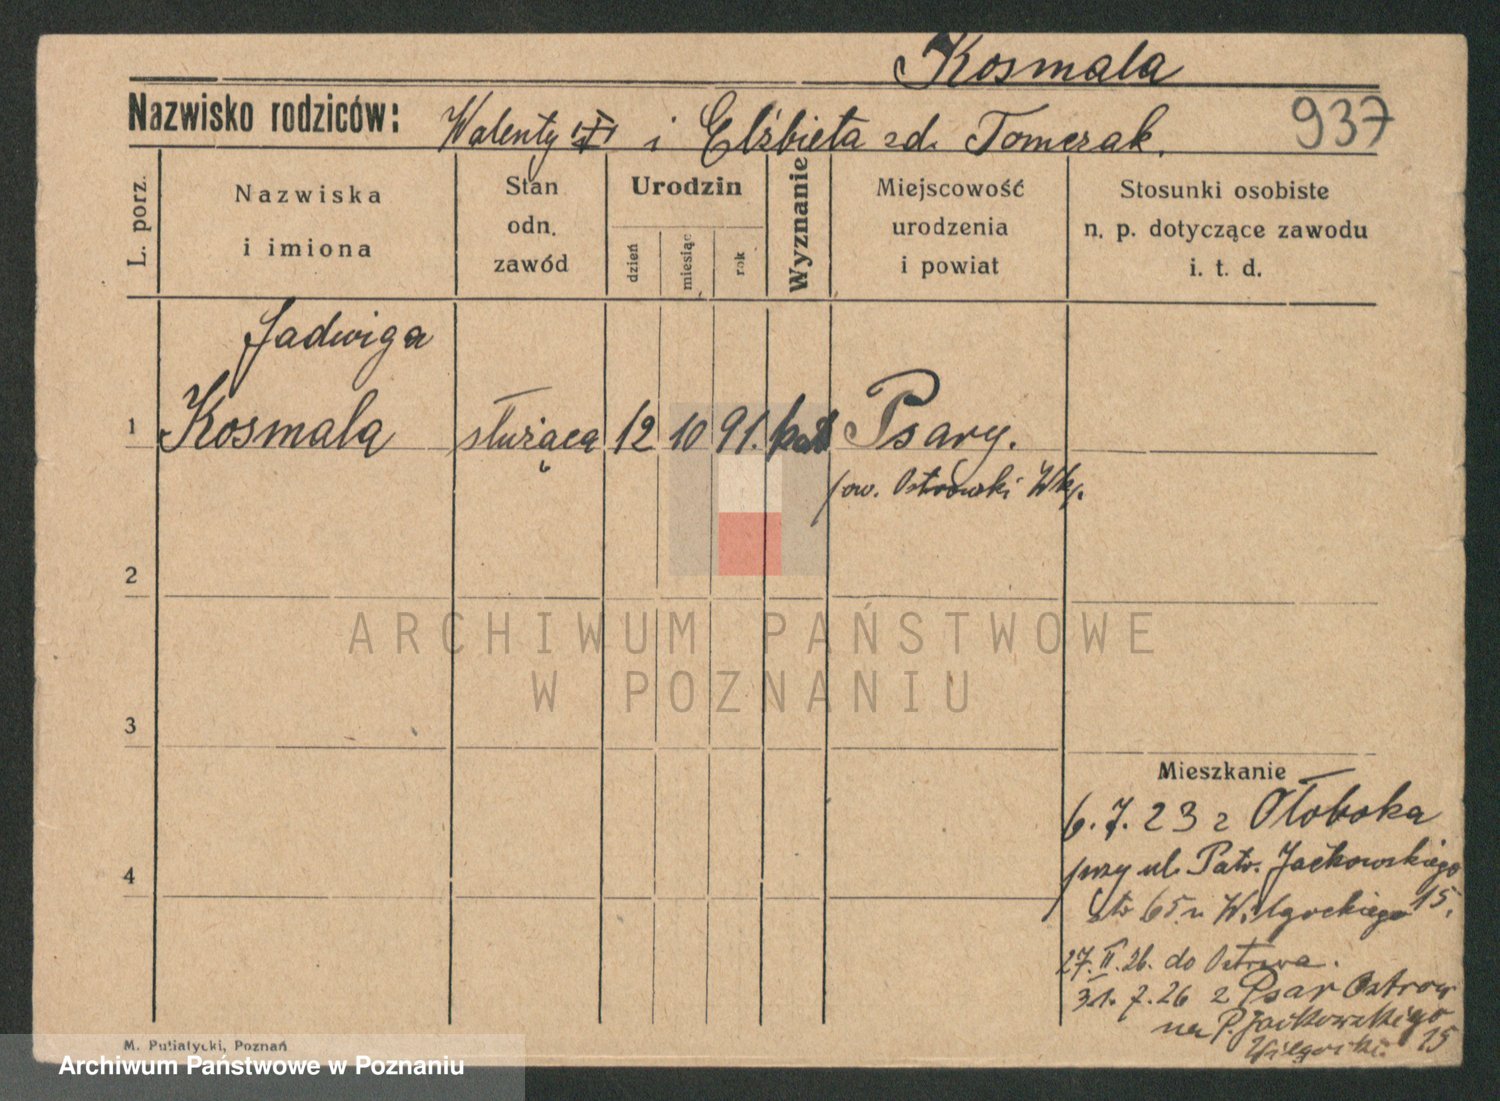 Kosmala
Nazwisko rodziców: Walenty i Elżbieta zd. Tomczak.
937
L. porz.
Nazwiska
i imiona
Stan
odn.
zawód
Urodzin
dzień
miesiąc
rok
Wyznanie
Miejscowość
urodzenia
i powiat
Stosunki osobiste
n. p. dotyczące zawodu
i. t. d.
Jadwiga
1 Kosmala służąca 12 10 91. kat Psary.
pow. Ostrowski Wkp.
2
3
4
Mieszkanie
6. 7. 23 z Ołoboka
przy ul. Patr. Jackowskiego
15.
str 65 u
27. II. 26. do Ostrowa.
31. 7. 26 z Psar Ostrow
na P. Jackowskiego
15
M. Putiatycki, Poznań
ARCHIWUM PAŃSTWOWE
W POZNANIU
Archiwum Państwowe w Poznaniu